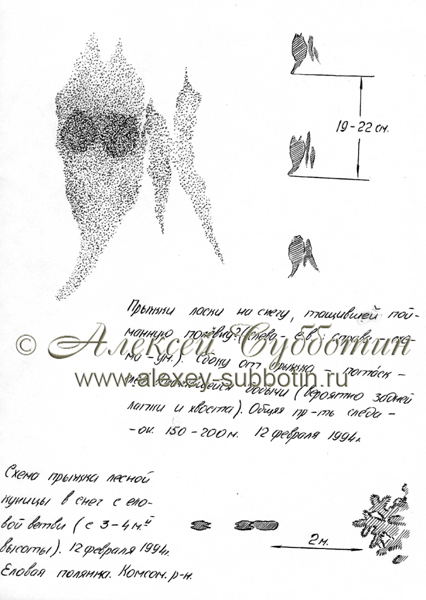 19-22 см.
Прыжки ласки на снегу, тащившей пой-
манную полевку? (слева
Сбоку от прыжка - потаск
добычи (вероятно задней
лапки и хвоста). Общая пр-ть следа -
- ок. 150-200 м. 12 февраля 1994г.
© Алексей Субботин
www.alexey-subbotin.ru
Схема прыжка лесной
куницы в снег с ело-
вой ветви (с 3-4 м.й
высоты). 12 февраля 1994г.
Еловая полянка. Комсом. р-н.
2м.